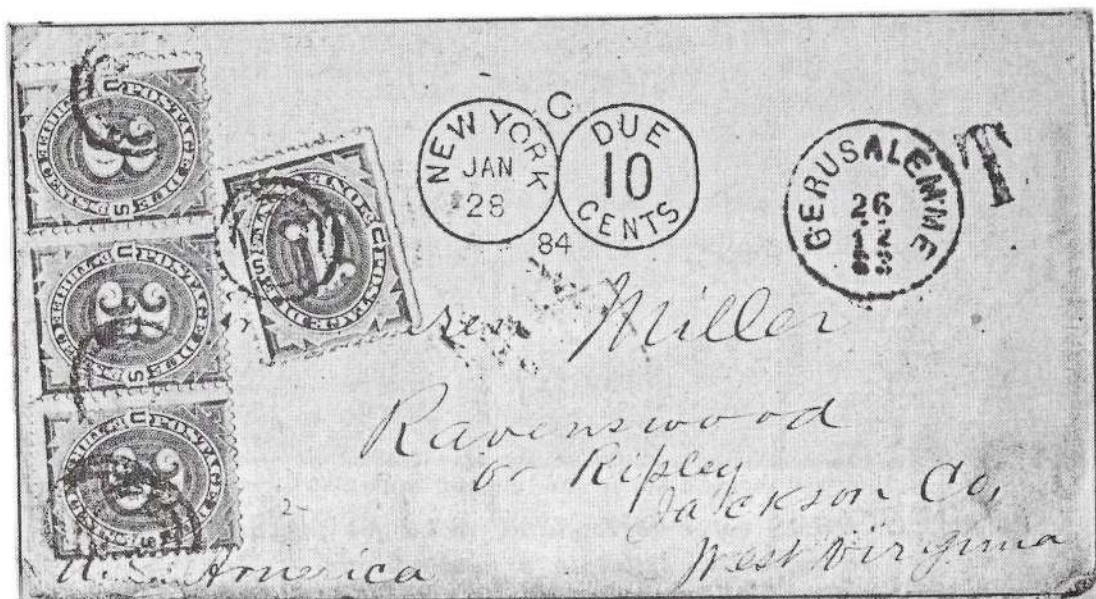 U.S. POSTAGE DUE
3
U.S. POSTAGE DUE
3
U.S. POSTAGE DUE
3
U.S. POSTAGE DUE ONE CENT
1
NEW YORK
JAN
28
84
C
DUE
10
CENTS
GERUSALEMME
26
T
Miller
Ravenswood
or Ripley
Jackson Co,
West Virginia
U.S. America